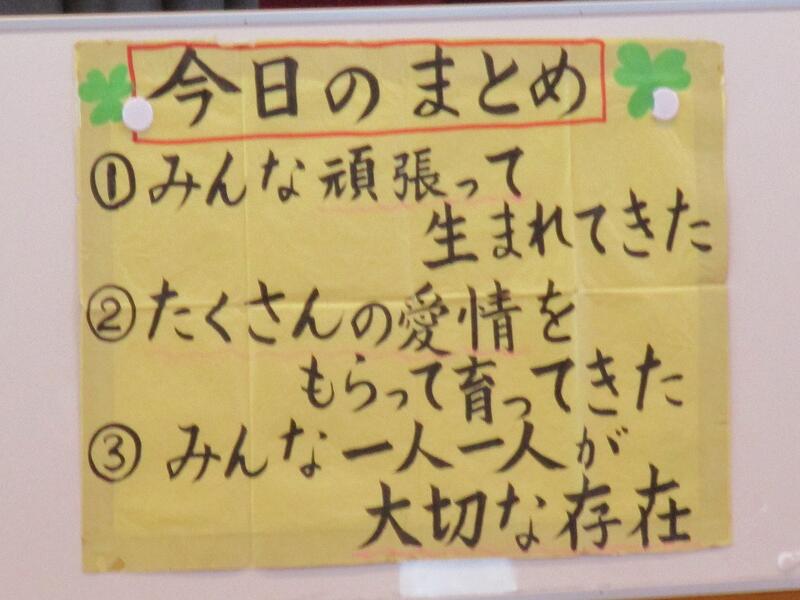 今日のまとめ
①みんな頑張って
生まれてきた
②たくさんの愛情を
もらって育ってきた
③みんな一人一人が
大切な存在